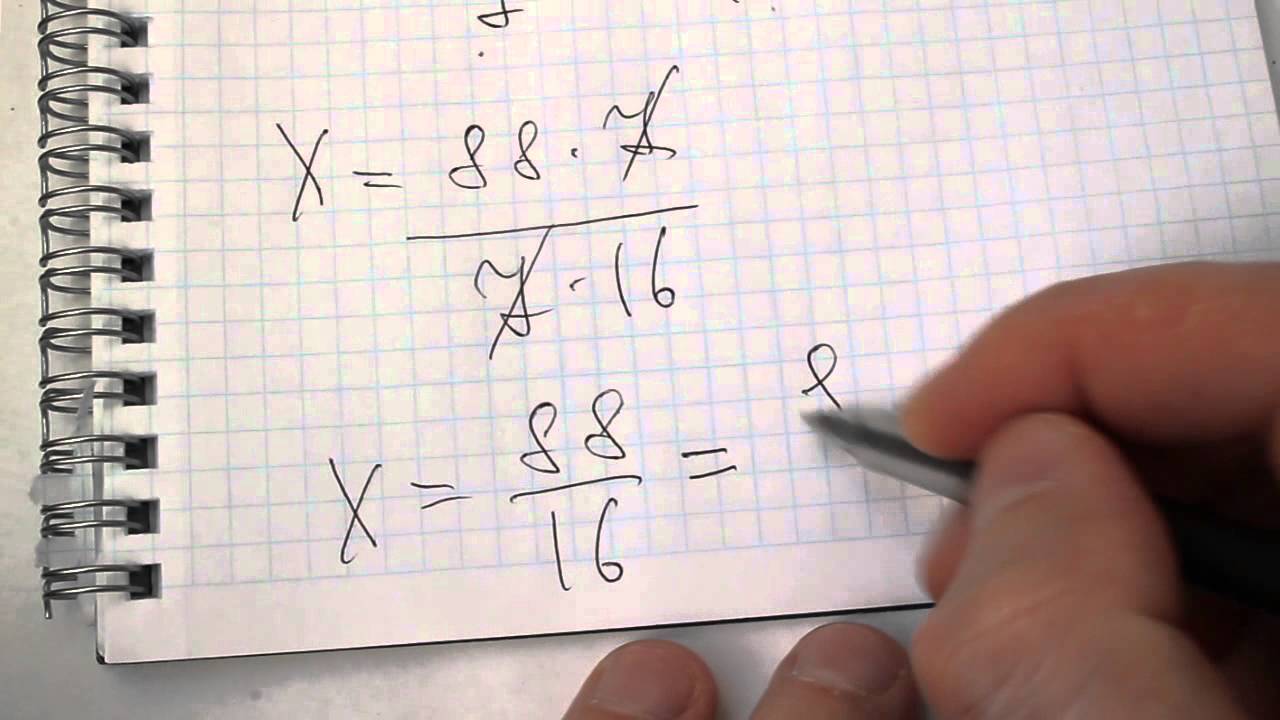 X = 88 · 7
7 · 16
X = 88 =
16